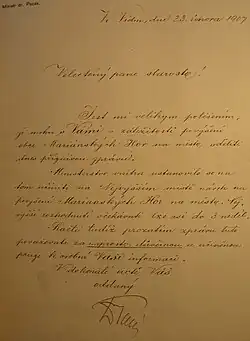 Ve Vídni, dne 23. února 1907
Velectěný pane starosto!
Jest mi velikým potěšením,
že mohu Vám v záležitosti povýšení
obce Mariánských Hor na město, udělit
dnes příznivou zprávu.
Ministerstvo vnitra ustanovilo se na
tom učiniti na Nejvyšším místě návrh na
povýšení Mariánských Hor na město. Nej-
vyšší rozhodnutí očekávati lze asi do 3 neděl.
Račte tudíž prozatím zprávu tuto
považovati za naprosto důvěrnou a
pouze k osobní Vaší informaci.
V dokonalé úctě Vám
oddaný